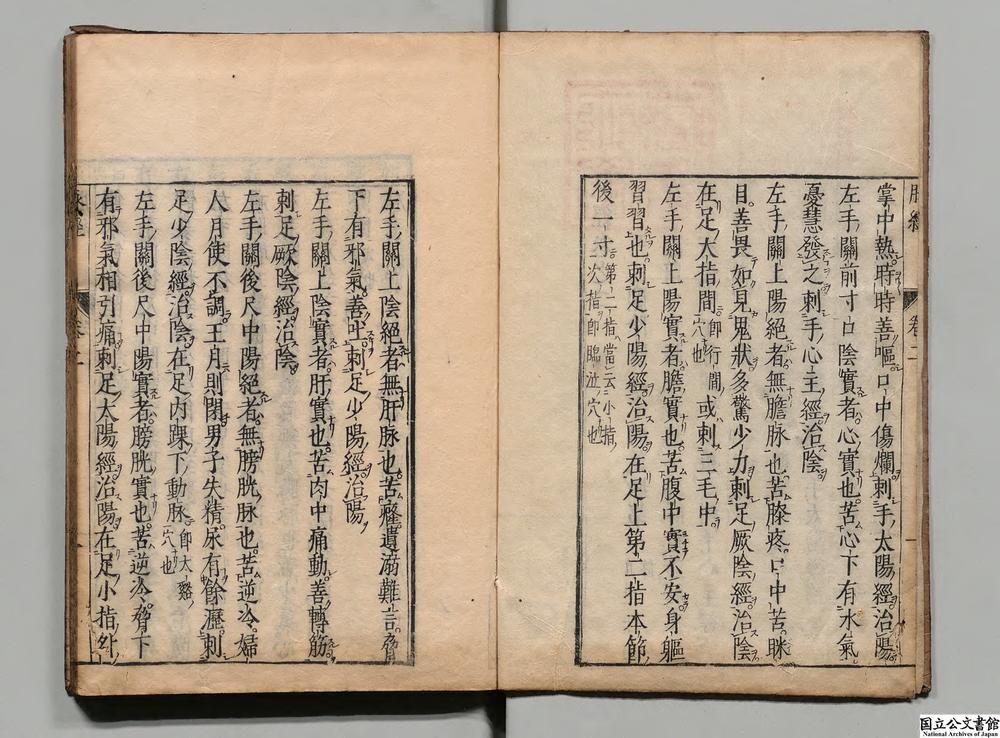 脈經 卷二
掌中熱時時善嘔口中傷爛刺手太陽經治陽
左手關前寸口陰實者心實也苦心下有水氣
憂恚發之刺手心主經治陰
左手關上陽絕者無膽脉也苦膝疼口中苦眯
目善畏如見鬼狀多驚少力刺足厥陰經治陰
在足大指間即行間穴也或刺三毛中
左手關上陽實者膽實也苦腹中實不安身軀
習習也刺足少陽經治陽在足上第二指本節
後一寸第二指當云小指次指即臨泣穴也
左手關上陰絕者無肝脉也苦癃遺溺難言脅
下有邪氣善吐刺足少陽經治陽
左手關上陰實者肝實也苦肉中痛動善轉筋
刺足厥陰經治陰
左手關後尺中陽絕者無膀胱脉也苦逆冷婦
人月使不調王月則閉男子失精尿有餘瀝刺
足少陰經治陰在足內踝下動脉即太谿穴也
左手關後尺中陽實者膀胱實也苦逆冷脅下
有邪氣相引痛刺足太陽經治陽在足小指外
脈經 卷二
国立公文書館
National Archives of Japan